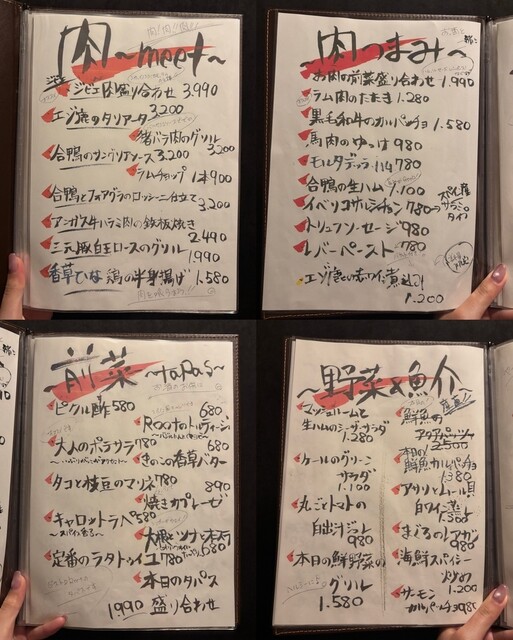 肉 ~meet~
ジビエ肉盛り合わせ 3.990
エゾ鹿のタリアータ 3.200
猪バラ肉のグリル 3.200
合鴨のサングリアソース 3.200
ラムチョップ 1本900
合鴨とフォアグラのロッシーニ仕立て 3.200
アンガス牛ハラミ肉の鉄板焼き 2.490
三元豚白王ロースのグリル 1.990
香草ひな鶏の半身揚げ 1.580
~肉つまみ~
お肉の前菜盛り合わせ 1.990
ラム肉のたたき 1.280
黒毛和牛のカルパッチョ 1.580
馬肉のゆっけ 980
モルタデッラハム 780
合鴨の生ハム 1.100
イベリコサルシチョン 780
スパイス薫るサラミタイプ
トリュフソーセージ 980
レバーペースト 780
エゾ鹿の赤ワイン煮込み 1.200
~前菜 ~tapas~
ピクル酢 580
Rootのトルティージャ 680
大人のポテサラ 780
きのこの香草バター 680
タコと枝豆のマリネ 780
焼きカプレーゼ 890
キャロットラペ 580
~スパイス香る~
大根とツナと水菜 680
定番のラタトゥイユ 780
本日のタパス盛り合わせ 1990
~野菜&魚介~
マッシュルームと生ハムのシーザーサラダ 1.280
ケールのグリーンサラダ 1.100
丸ごとトマトの白出汁ジュレ 980
本日の鮮野菜のグリル 1.580
産直!!
鮮魚のアクアパッツァ 2500
本日の鮮魚カルパッチョ 1.380
アサリとムール貝白ワイン蒸し 1.300
まぐろのレアカツ 980
海鮮スパイシー炒め 1.200
サーモンカルパッチョ 980